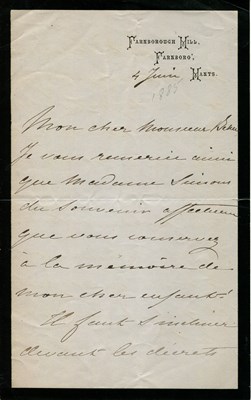 Farnborough Hill,
Farnboro',
Hants.
4 Juin
1885
Mon cher Monsieur
Je vous remercie ainsi
que Madame Simons
du souvenir affectueux
que vous conservez
à la mémoire de
mon cher enfant.
Il faut s'incliner
devant les décrets